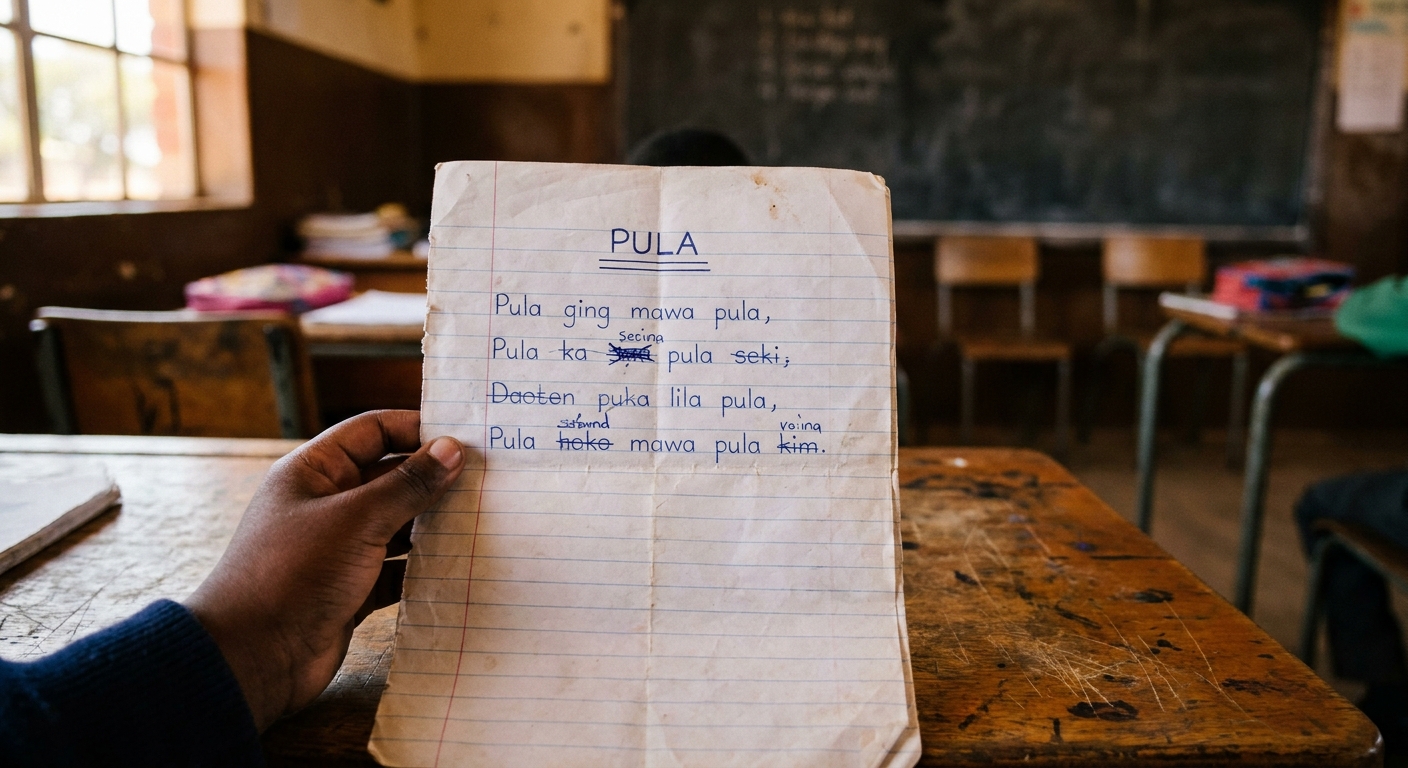 PULA
Pula ging mawa pula,
secina
Pula ka pula seki;
Daoten puka lila pula,
voina
Pula hoko mawa pula kim.